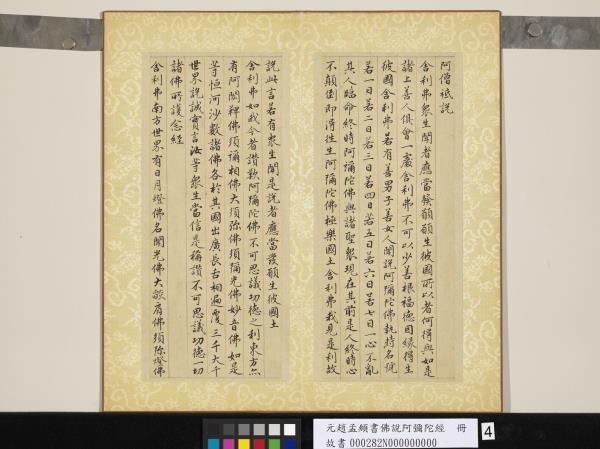 阿僧祇說
舍利弗衆生聞者應當發願願生彼國所以者何得與如是
諸上善人俱會一處舍利弗不可以少善根福德因緣得生
彼國舍利弗若有善男子善女人聞說阿彌陀佛執持名號
若一日若二日若三日若四日若五日若六日若七日一心不亂
其人臨命終時阿彌陀佛與諸聖衆現在其前是人終時心
不顛倒即得往生阿彌陀佛極樂國土舍利弗我見是利故
說此言若有衆生聞是說者應當發願生彼國土
舍利弗如我今者讚歎阿彌陀佛不可思議功德之利東方亦
有阿閦鞞佛須彌相佛大須弥佛須彌光佛妙音佛如是
等恒河沙數諸佛各於其國出廣長舌相遍覆三千大千
世界說誠實言汝等衆生當信是稱讚不可思議功德一切
諸佛所護念經
舍利弗南方世界有日月燈佛名聞光佛大焰肩佛須弥燈佛
元趙孟頫書佛說阿彌陀經 冊
故書 000282N000000000
4